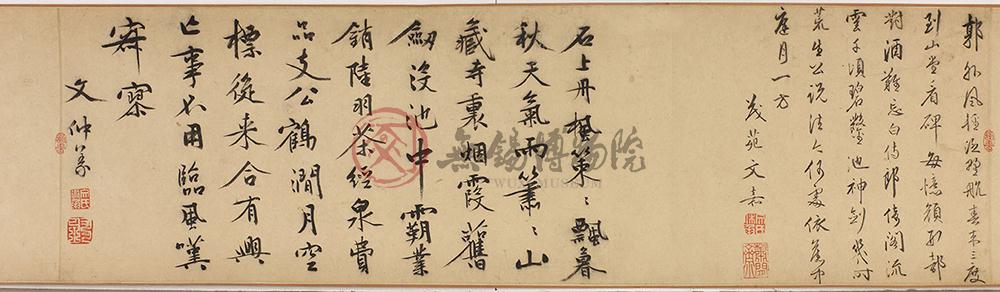 郭外風煙泛野航春來三度
到山堂看碑每憶顏刑部
對酒難忘白侍郎傍閣流
雲千頃碧池神劍幾時
荒生公說法今何處依舊中
庭月一方
茂苑文嘉
石上丹楓策〻飄暮
秋天氣雨蕭〻山
藏寺裏烟霞舊
劒沒池中霸業
銷陸羽茶經泉費
品支公鶴澗月空
標從來合有興
亡事不用臨風嘆
寂寥
文仲義
無錫博物院
WUXI MUSEUM